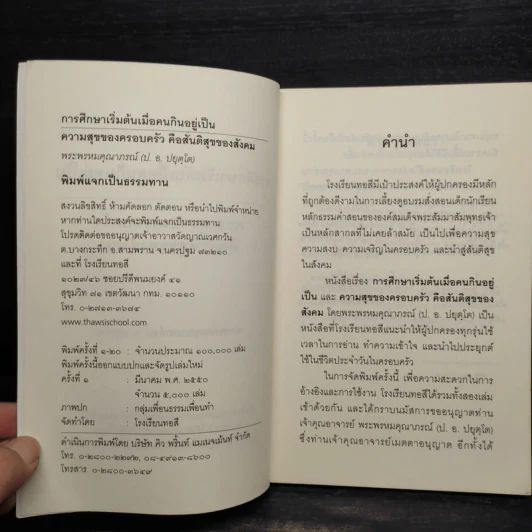 การศึกษาเริ่มต้นเมื่อคนกินอยู่เป็น
ความสุขของครอบครัว คือสันติสุขของสังคม
พระพรหมคุณาภรณ์ (ป. อ. ปยุตฺโต)
พิมพ์แจกเป็นธรรมทาน
สงวนลิขสิทธิ์ ห้ามคัดลอก ตัดตอน หรือนำไปพิมพ์จำหน่าย
หากท่านใดประสงค์จะพิมพ์แจกเป็นธรรมทาน
โปรดติดต่อขออนุญาตเจ้าอาวาสวัดญาณเวศกวัน
ต.บางกระทึก อ.สามพราน จ.นครปฐม ๗๓๒๑๐
และที่ โรงเรียนทอสี
๑๐๒๓/๔๖ ซอยปรีดีพนมยงค์ ๔๑
สุขุมวิท ๗๑ เขตวัฒนา กทม. ๑๐๑๑๐
โทร. ๐-๒๗๑๓-๓๖๗๔
www.thawsischool.com
พิมพ์ครั้งที่ ๑-๒๐ : จำนวนประมาณ ๑๐๐,๐๐๐ เล่ม
พิมพ์ครั้งนี้ออกแบบปกและจัดรูปเล่มใหม่
ครั้งที่ ๑ : มีนาคม พ.ศ. ๒๕๕๐
จำนวน ๕,๐๐๐ เล่ม
ภาพปก : กลุ่มเพื่อนธรรมเพื่อนทำ
จัดทำโดย : โรงเรียนทอสี
ดำเนินการพิมพ์โดย บริษัท คิว พริ้นท์ แมเนจเม้นท์ จำกัด
โทร. ๐-๒๘๐๐-๒๒๙๒, ๐๘-๔๙๑๓-๘๖๐๐
โทรสาร ๐-๒๘๐๐-๓๖๔๙
คำนำ
โรงเรียนทอสีมีเป้าประสงค์ให้ผู้ปกครองมีหลัก
ที่ถูกต้องดีงามในการเลี้ยงดูอบรมสั่งสอนเด็กนักเรียน
หลักธรรมคำสอนขององค์สมเด็จพระสัมมาสัมพุทธเจ้า
เป็นหลักสากลที่ไม่เคยล้าสมัย เป็นไปเพื่อความสุข
ความสงบ ความเจริญในครอบครัว และนำสู่สันติสุข
ในสังคม
หนังสือเรื่อง การศึกษาเริ่มต้นเมื่อคนกินอยู่
เป็น และ ความสุขของครอบครัว คือสันติสุขของ
สังคม โดยพระพรหมคุณาภรณ์ (ป. อ. ปยุตฺโต) เป็น
หนังสือที่โรงเรียนทอสีแนะนำให้ผู้ปกครองทุกรุ่นใช้
เวลาในการอ่าน ทำความเข้าใจ และนำไปประยุกต์
ใช้ในชีวิตประจำวันในครอบครัว
ในการจัดพิมพ์ครั้งนี้ เพื่อความสะดวกในการ
อ้างอิงและการใช้งาน โรงเรียนทอสีได้รวมทั้งสองเล่ม
เข้าด้วยกัน และได้กราบนมัสการขออนุญาตท่าน
เจ้าคุณอาจารย์ พระพรหมคุณาภรณ์ (ป. อ. ปยุตฺโต)
ซึ่งท่านเจ้าคุณอาจารย์เมตตาอนุญาต อีกทั้งได้